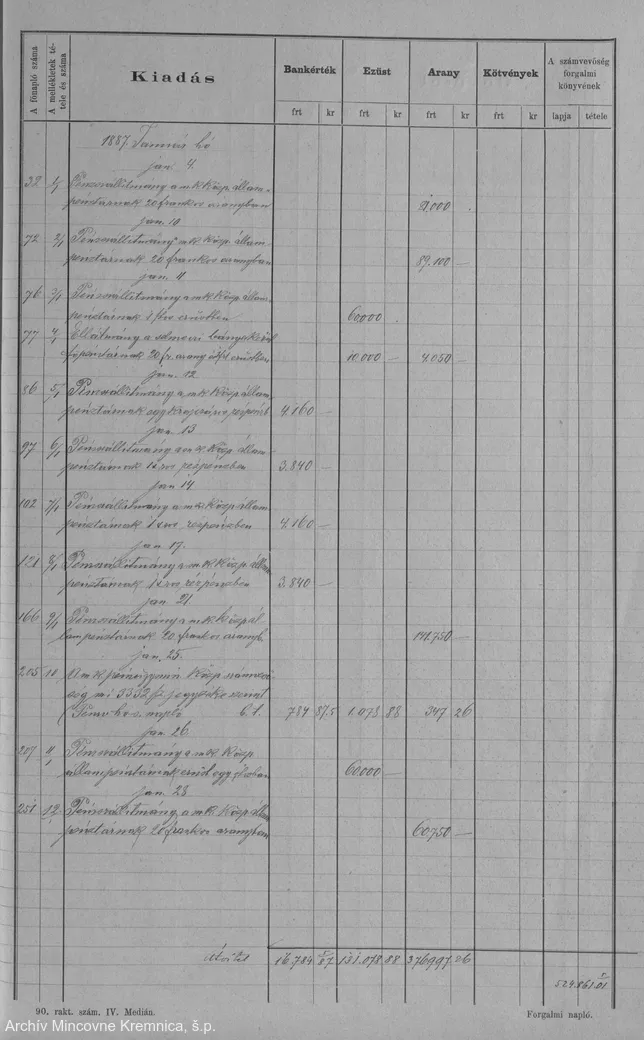 A főnapló száma
A mellékletek tétele és száma
Kiadás
Bankérték
Ezüst
Arany
Kötvények
A számvevőség forgalmi könyvének
frt kr frt kr frt kr frt kr lapja tétele
1887. hó
jan. 4.
32 1/1 Pénzszállitmány a mk. közp. állam-
pénztárnak 20 frankos aranyban 000
jan. 10
72 2/1 Pénzszállitmány mk. közp. állam
pénztárnak 20 frankos aranyban 89.100 —
jan. 11
76 3/1 Pénzszállitmány a mk. közp. állam
pénztárnak 1 ftos ezüstben 60000 .
77 4/1 Ellátmány a
20 fr. arany ezüstben 10.000 — 4.050 —
jan. 12
86 5/1 Pénzszállitmány a mk. közp. állam
pénztárnak egy krajczáros 4.160 —
jan. 13
97 6/1 Pénzszállitmány a mk. közp. állam
pénztárnak 1 kros rézpénzben 3.840 —
jan. 14
102 7/1 Pénzszállitmány a mk. közp. állam
pénztárnak 1 kros rézpénzben 4.160 —
jan. 17.
121 8/1 Pénzszállitmány a mk. közp. állam
pénztárnak 1 kros rézpénzben 3.840 —
jan. 21.
166 9/1 Pénzszállitmány a mk. közp. ál
lampénztárnak 20 frankos aranyb. 141.750 —
jan. 25.
205 10 A mk. pénzügymin. közp.
3302
784 87.5 1.078 88 347 26
jan. 26.
207 11 Pénzszállitmány a mk. közp.
állampénztárnak ezüst egy 60.000 —
jan. 28
251 12 Pénzszállitmány a mk. közp. állam
pénztárnak 20 frankos aranyban 60.750 —
Átvitel 16.784 87 131.078 88 376997 26
524.861.01
90. rakt. szám. IV. Medián.
Forgalmi napló.
Archív Mincovne Kremnica, š.p.